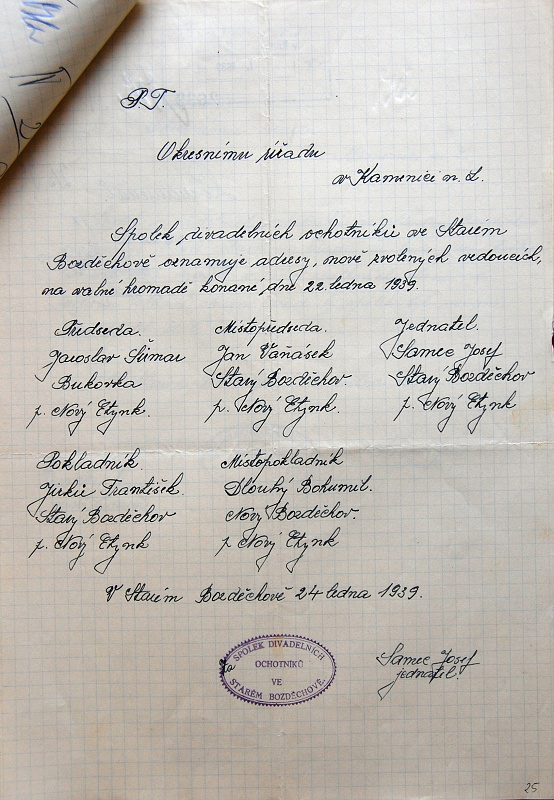 P.T.
Okresnímu úřadu
v Kamenici n. L.
Spolek divadelních ochotníků ve Starém
Bozděchově oznamuje adresy, nově zvolených vedoucích,
na valné hromadě konané, dne 22. ledna 1939.
Předseda. Místopředseda. Jednatel.
Jaroslav Jan Vaňásek Samec Josef
Bukovka Starý Bozděchov. Starý Bozděchov
p. Nový Etynk. p. Nový Etynk. p. Nový Etynk
Pokladník. Místopokladník
Jirků František. Dlouhý Bohumil.
Starý Bozděchov Nový Bozděchov.
p. Nový Etynk p. Nový Etynk
V Starém Bozděchově 24 ledna 1939.
Za
SPOLEK DIVADELNÍCH
OCHOTNÍKŮ
VE
STARÉM BOZDĚCHOVĚ.
Samec Josef
jednatel.
25